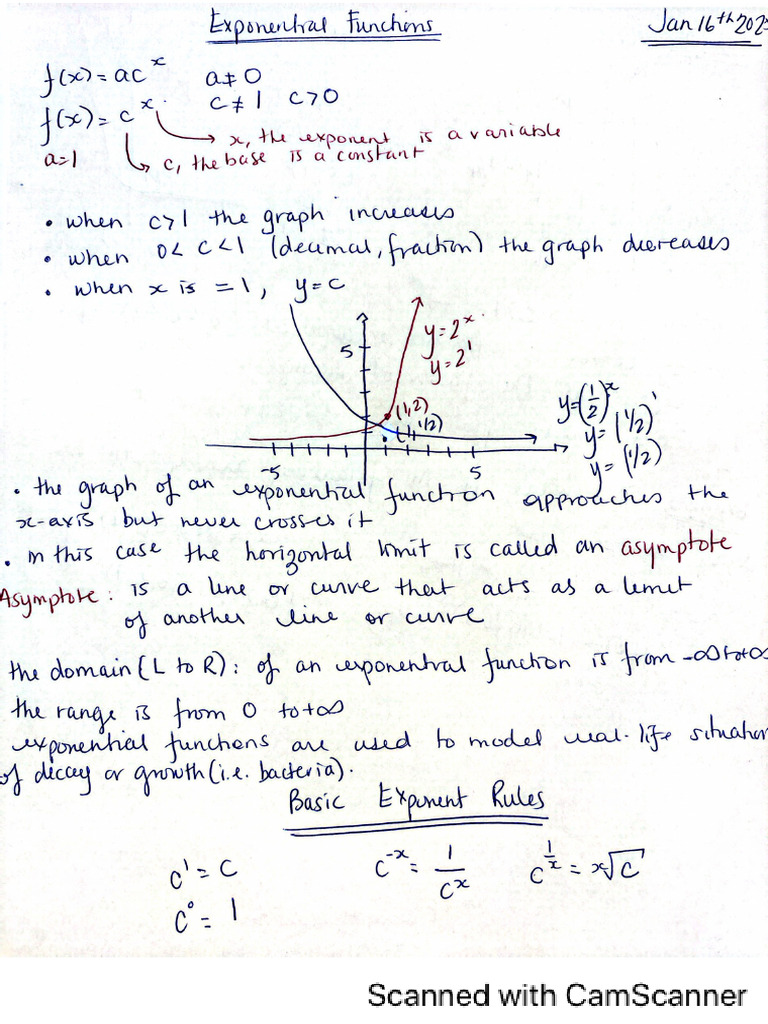 Exponential Functions
Jan 16th 202
f(x) = ac^x   a≠0
f(x) = c^x   c≠1   c>0
→ x, the exponent is a variable
a=1   → c, the base is a constant
• when c>1 the graph increases
• when 0< c<1 (decimal, fraction) the graph decreases
• when x is =1, y=c
y=2^x
5
y=2^1
y=(1/2)^x
(1,2)
(1,1/2)
y=(1/2)^1
y=(1/2)
-5   5
• the graph of an exponential function approaches the
x-axis but never crosses it
• in this case the horizontal limit is called an asymptote
Asymptote: is a line or curve that acts as a limit
of another line or curve
the domain (L to R): of an exponential function is from -∞ to +∞
the range is from 0 to +∞
exponential functions are used to model real-life situation
of decay or growth (i.e. bacteria).
Basic Exponent Rules
c^1 = c   c^-x = 1/c^x   c^1/x = x√c
c^0 = 1
Scanned with CamScanner